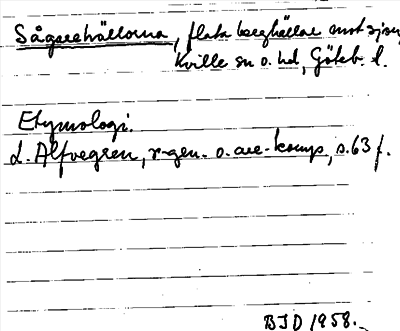 Sågarehällorna, flata berghällar mot sjön,
Kville sn o. hd, Göteb. l.
Etymologi.
L. Alfvegren, r-gen. o. are-komp, s. 63 f.
BJD 1958.